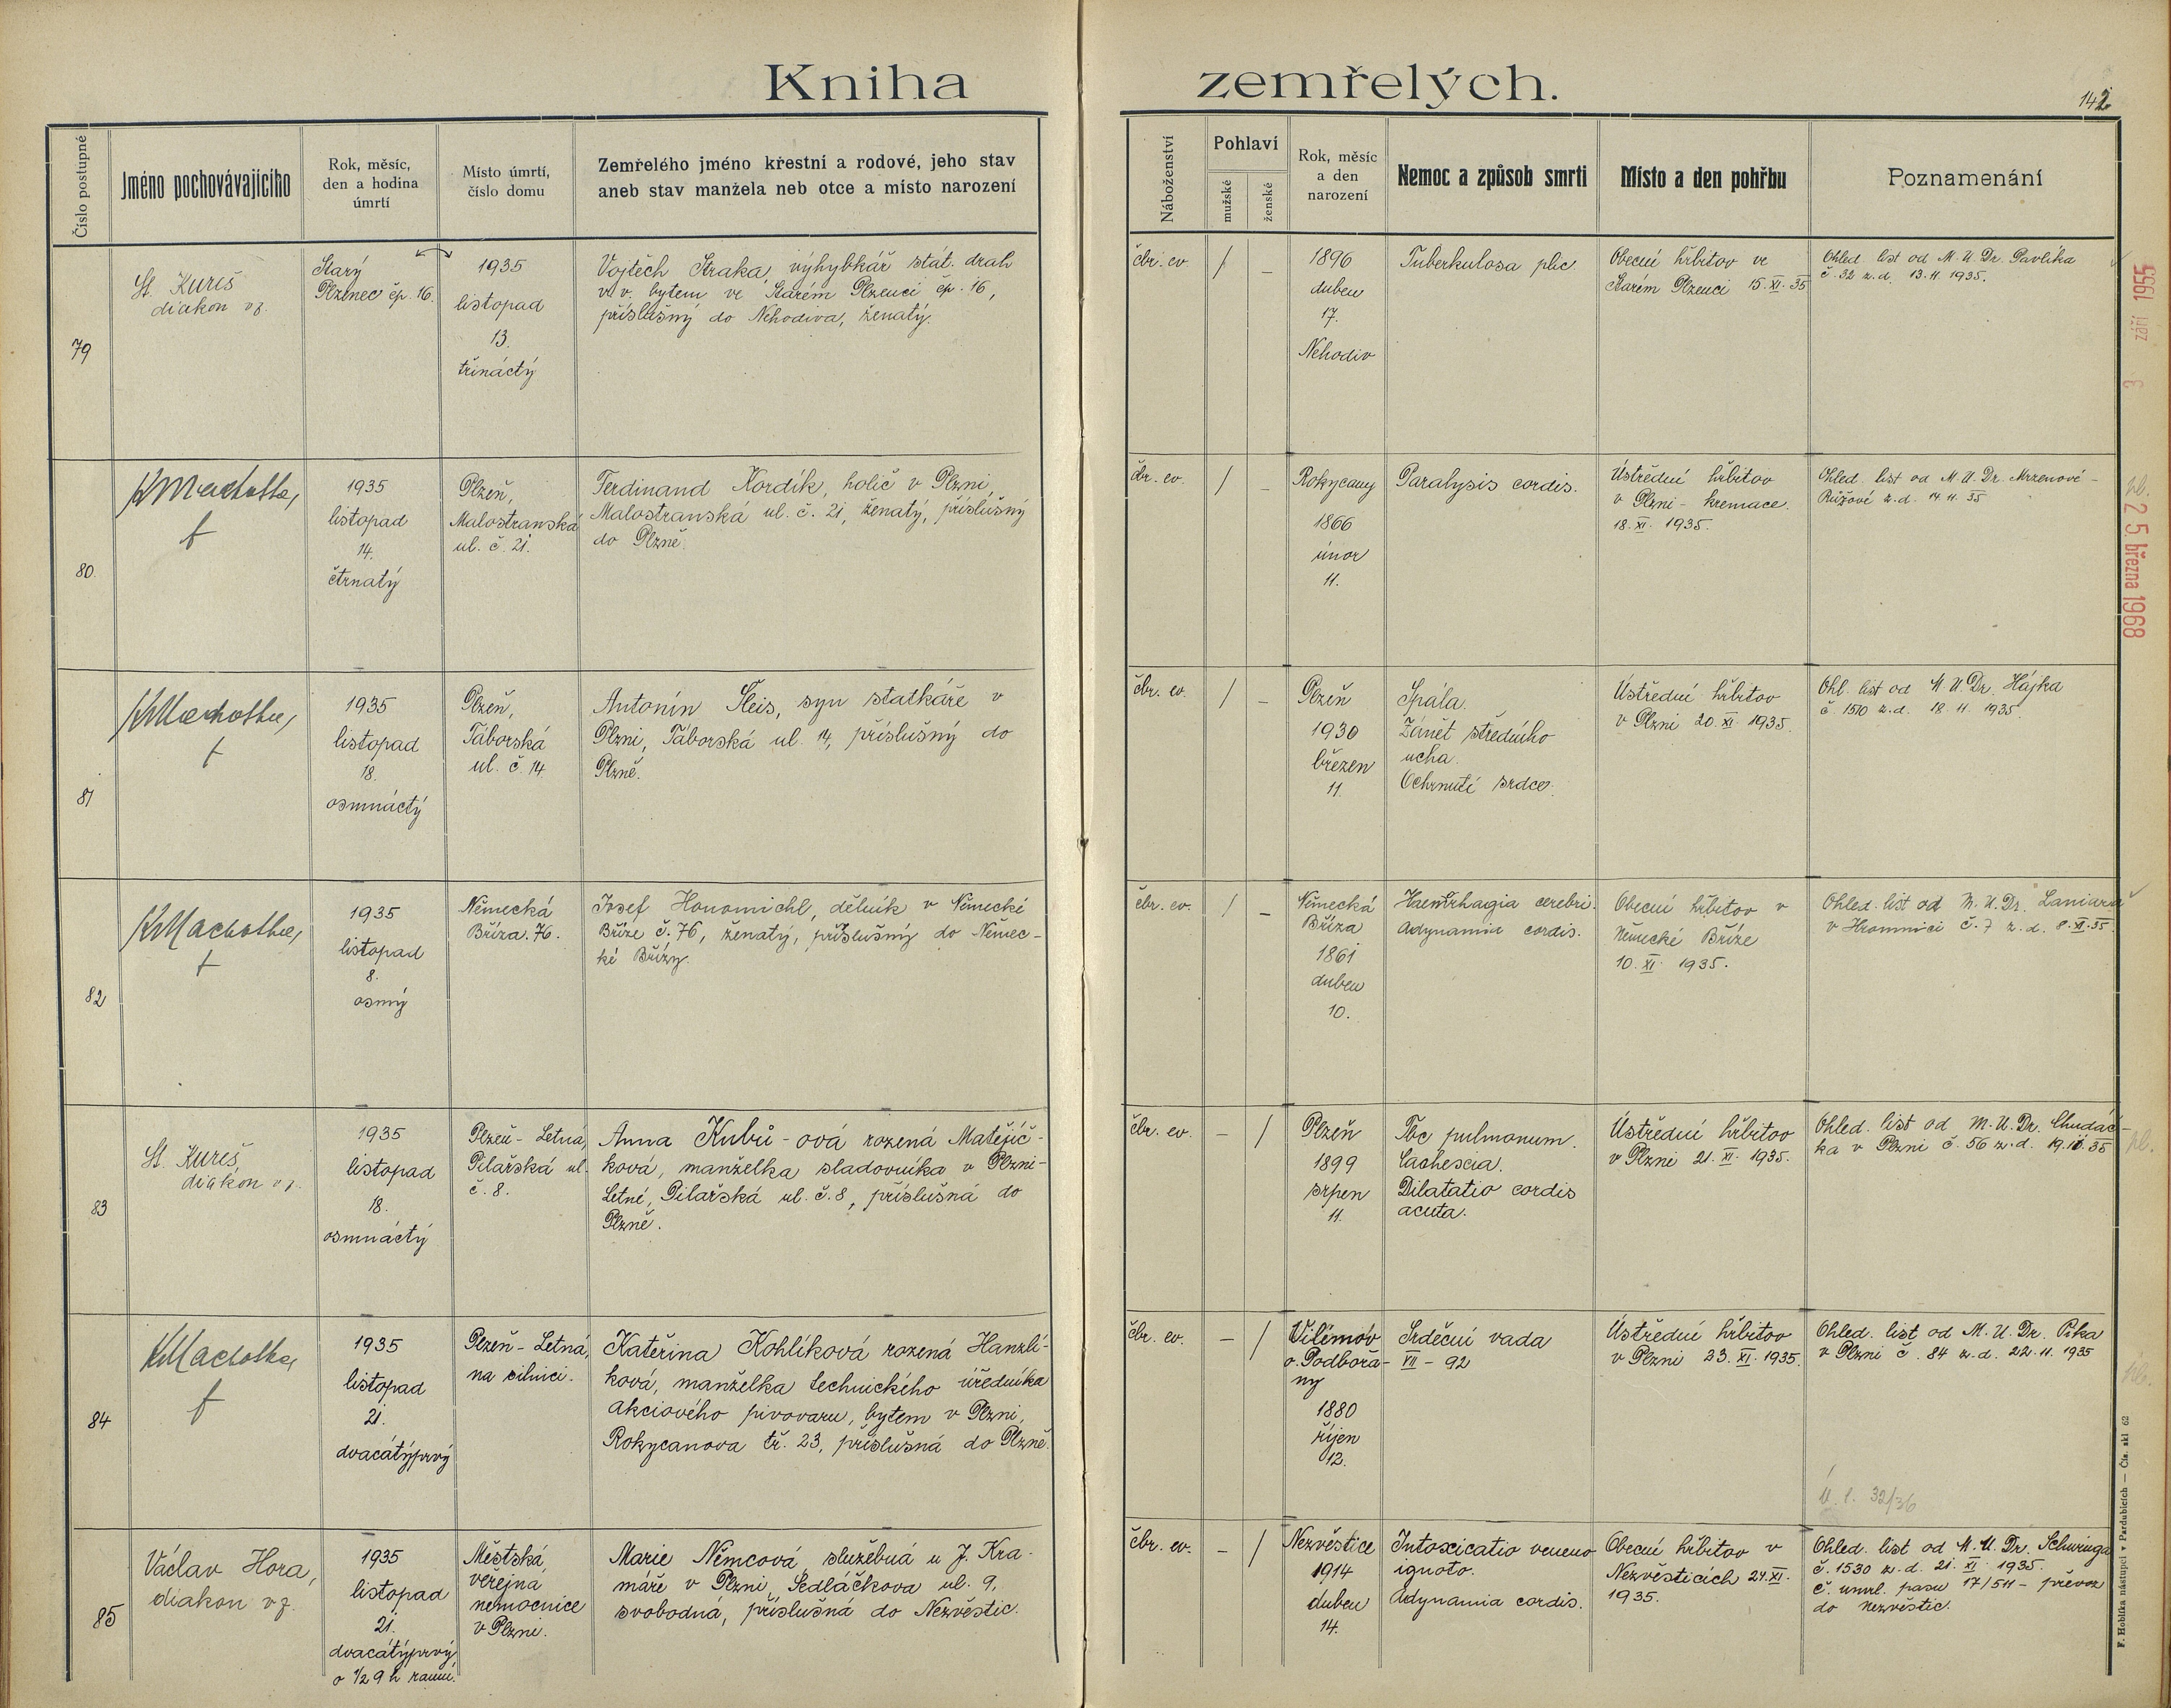 Kniha zemřelých.
142
Číslo postupné
Jméno pochovávajícího
Rok, měsíc,
den a hodina
úmrtí
Místo úmrtí,
číslo domu
Zemřelého jméno křestní a rodové, jeho stav
aneb stav manžela neb otce a místo narození
Náboženství
Pohlaví
mužské
ženské
Rok, měsíc
a den
narození
Nemoc a způsob smrti
Místo a den pohřbu
Poznamenání
79
St. Kureš
diakon vz.
Starý
Plzenec čp. 16.
1935
listopad
13.
třináctý
Vojtěch Straka, výhybkář stát. drah
v. v. bytem ve Starém Plzenci čp. 16,
příslušný do Nehodiva, ženatý.
čbr. ev.
/
–
1896
duben
17.
Nehodiv
Tuberkulosa plic
Obecní hřbitov ve
Starém Plzenci 15. XI. 35
Ohled. list od M. U. Dr. Pavlíka
č. 32 z. d. 13. 11. 1935.
3 září 1955
80.
KMachotka,
f
1935
listopad
14.
čtrnatý
Plzeň,
Malostranská
ul. č. 21.
Ferdinand Kordík, holič v Plzni,
Malostranská ul. č. 21, ženatý, příslušný
do Plzně.
čbr. ev.
/
–
Rokycany
1866
únor
11.
Paralysis cordis.
Ústřední hřbitov
v Plzni - kremace.
18. XI. 1935.
Ohled. list od M. U. Dr. Mrzenové -
Růžové z. d. 14 11. 35
25. března 1968
81
KMachotka,
f
1935
listopad
18.
osmnáctý
Plzeň,
Táborská
ul. č. 14
Antonín Šleis, syn statkáře v
Plzni, Táborská ul. 14, příslušný do
Plzně.
čbr. ev.
/
–
Plzeň
1930
březen
11.
Spála.
Zánět středního
ucha.
Ochrnutí srdce.
Ústřední hřbitov
v Plzni 20. XI. 1935.
Ohl. list od M. U. Dr. Hájka
č. 1510 z. d. 18. 11. 1935.
82
KMachotka,
f
1935
listopad
8.
osmý
Německá
Bříza. 76.
Josef Honomichl, dělník v Německé
Bříze č. 76, ženatý, příslušný do Němec-
ké Břízy.
čbr. ev.
/
–
Německá
Bříza
1861
duben
10.
cerebri.
Adynamia cordis.
Obecní hřbitov v
Německé Bříze
10. XI. 1935.
Ohled. list od M. U. Dr.
v Hromnici č. 7 z. d. 8. XI. 35.
83
St. Kureš,
diakon vz.
1935
listopad
18.
osmnáctý
Plzeň - Letná,
Pilařská ul.
č. 8.
Anna Kubů - ová rozená Matějíč-
ková, manželka sladovníka v Plzni-
Letné, Pilařská ul. č. 8, příslušná do
Plzně.
čbr. ev.
–
/
Plzeň
1899
srpen
11.
Tbc pulmonum.
Cachexia.
Dilatatio cordis
acuta.
Ústřední hřbitov
v Plzni 21. XI. 1935.
Ohled. list od M. U. Dr. Chudáč-
ka v Plzni č. 56 z. d. 19. 11. 35
84
KMachotka,
f
1935
listopad
21.
dvacátýprvý
Plzeň - Letná,
na silnici.
Kateřina Kohlíková rozená Hanzlí-
ková, manželka technického úředníka
akciového pivovaru, bytem v Plzni,
Rokycanova tř. 23, příslušná do Plzně.
čbr. ev.
–
/
Vilémov
o. Podbořa-
ny
1880
říjen
12.
Srdeční vada
VII - 92
Ústřední hřbitov
v Plzni 23. XI. 1935.
Ohled. list od M. U. Dr. Píka
v Plzni č. 84 z. d. 22. 11. 1935
32/36
85
Václav Hora,
diakon vz.
1935
listopad
21.
dvacátýprvý
o ½ 9 h ranní.
Městská
veřejná
nemocnice
v Plzni.
Marie Němcová, služebná u J. Kra-
máře v Plzni, Sedláčkova ul. 9,
svobodná, příslušná do Nezvěstic.
čbr. ev.
–
/
Nezvěstice
1914
duben
14.
Intoxicatio veneno
ignoto.
Adynamia cordis.
Obecní hřbitov v
Nezvěsticích 24. XI.
1935.
Ohled. list od M. U. Dr. Schwinga
č. 1530 z. d. 21. XI. 1935.
č. umrl. pasu 17/511 - převoz
do Nezvěstic.
F. Hoblíka nástupci v Pardubicích — Čís. skl 62